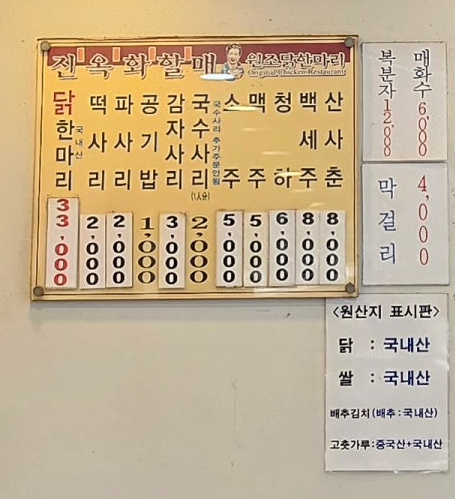 진옥화할매 원조닭한마리
Original Chicken Restaurant
닭한마리 국내산 33,000
떡사리 2,000
파사리 2,000
공기밥 1,000
감자사리 3,000
국수사리 (1人分) 2,000
국수사리 추가주문안됨
소주 5,000
맥주 5,000
청하 6,000
백세주 8,000
산사춘 8,000
매화수 6,000
복분자 12,000
막걸리 4,000
<원산지 표시판>
닭 : 국내산
쌀 : 국내산
배추김치(배추:국내산)
고춧가루:중국산+국내산